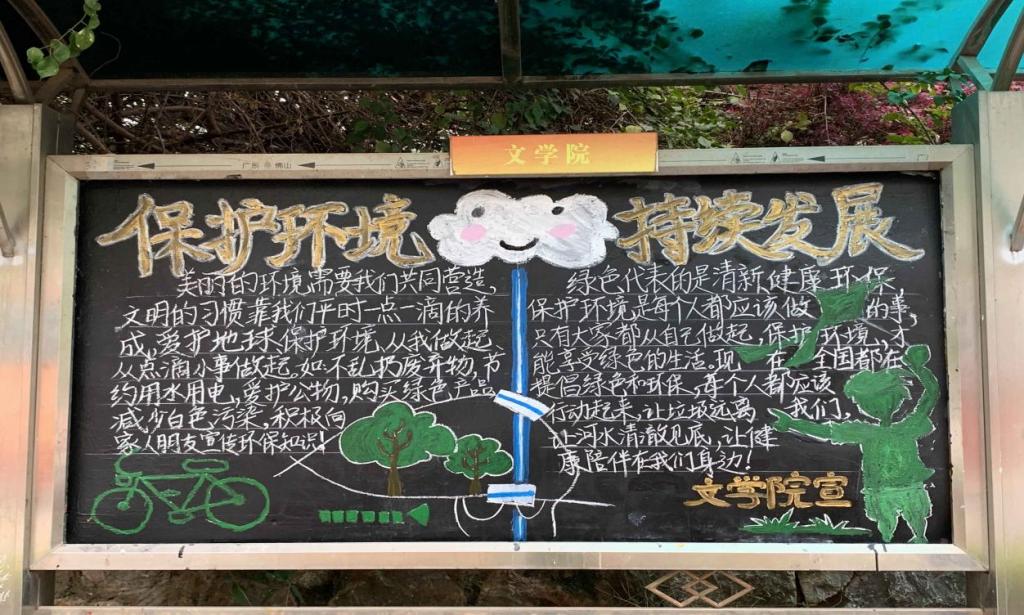 文学院
广东 佛山
保护环境 持续发展
美丽的环境需要我们共同营造,
文明的习惯靠我们平时一点一滴的养
成。爱护地球、保护环境,从我做起、
从点滴小事做起。如:不乱扔废弃物,节
约用水用电,爱护公物,购买绿色产品
减少白色污染,积极向
家人朋友宣传环保知识!
绿色代表的是清新健康环保,
保护环境是每个人都应该做的事,
只有大家都从自己做起,保护环境,才
能享受绿色的生活。现在全国都在
提倡绿色和环保,每个人都应该
行动起来,让垃圾远离我们,
让河水清澈见底,让健
康陪伴在我们身边!
文学院宣